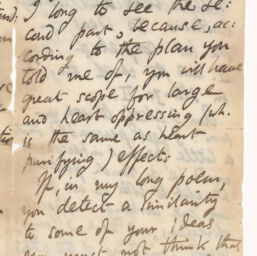 I long to see the se:
cond part, because, ac:
cording to the plan you
told me of, you will have
great scope for large
and heart oppressing (wh.
is the same as heart
purifying) effects
If, in my long poem,
you detect a similarity
to some of your ideas
you must not think that